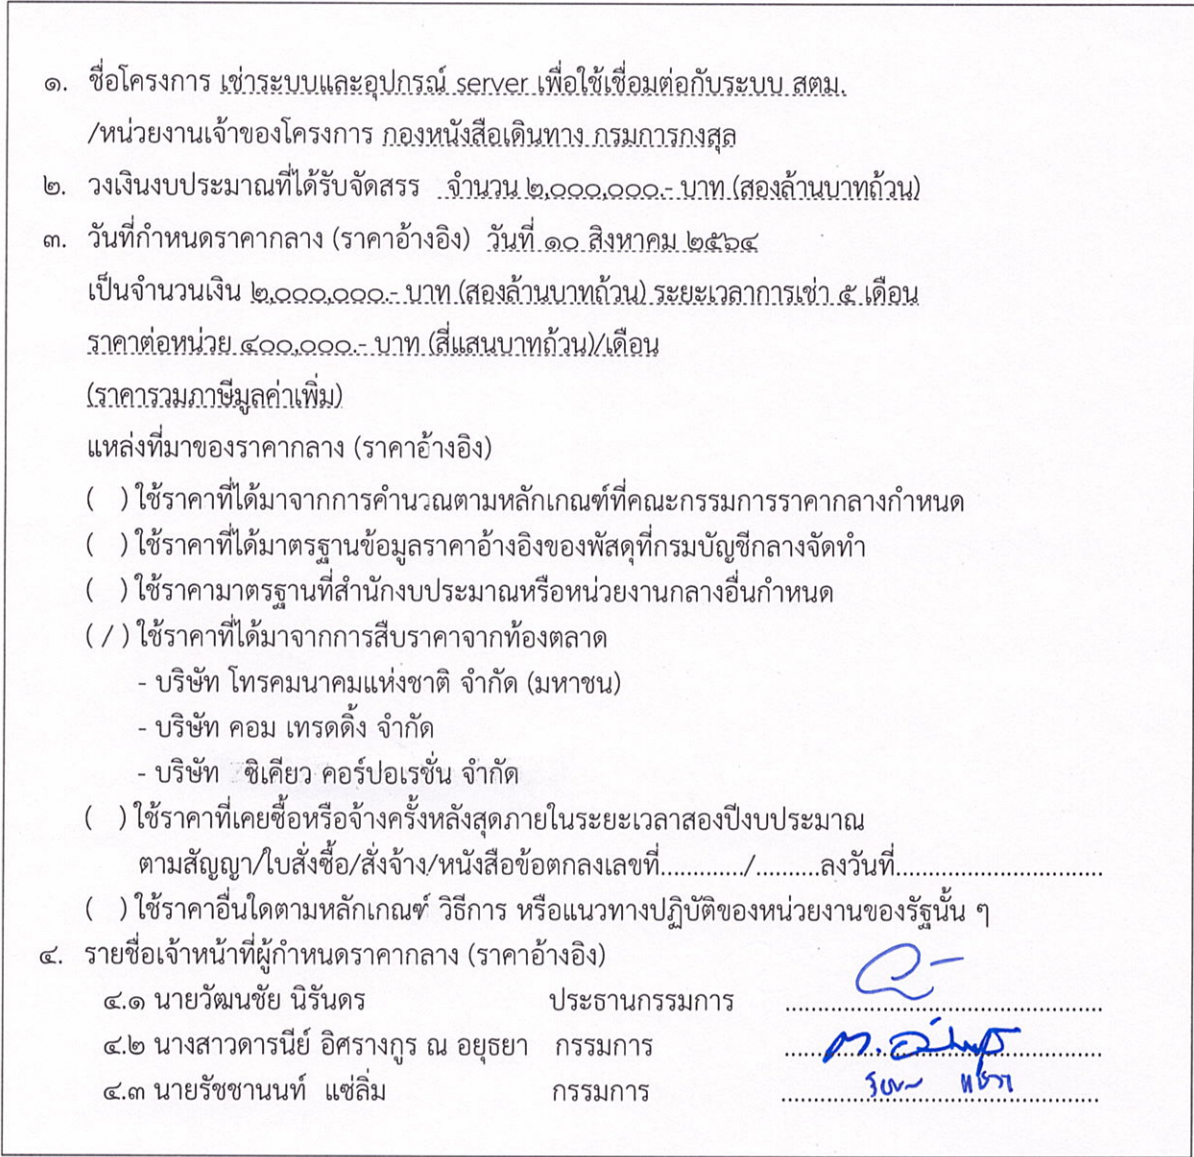 ๑. ชื่อโครงการ เช่าระบบและอุปกรณ์ server เพื่อใช้เชื่อมต่อกับระบบ สตม.
/หน่วยงานเจ้าของโครงการ กองหนังสือเดินทาง กรมการกงสุล
๒. วงเงินงบประมาณที่ได้รับจัดสรร จำนวน ๒,๐๐๐,๐๐๐.- บาท (สองล้านบาทถ้วน)
๓. วันที่กำหนดราคากลาง (ราคาอ้างอิง) วันที่ ๑๐ สิงหาคม ๒๕๖๔
เป็นจำนวนเงิน ๒,๐๐๐,๐๐๐.- บาท (สองล้านบาทถ้วน) ระยะเวลาการเช่า ๕ เดือน
ราคาต่อหน่วย ๔๐๐,๐๐๐.- บาท (สี่แสนบาทถ้วน)/เดือน
(ราคารวมภาษีมูลค่าเพิ่ม)
แหล่งที่มาของราคากลาง (ราคาอ้างอิง)
( ) ใช้ราคาที่ได้มาจากการคำนวณตามหลักเกณฑ์ที่คณะกรรมการราคากลางกำหนด
( ) ใช้ราคาที่ได้มาตรฐานข้อมูลราคาอ้างอิงของพัสดุที่กรมบัญชีกลางจัดทำ
( ) ใช้ราคามาตรฐานที่สำนักงบประมาณหรือหน่วยงานกลางอื่นกำหนด
( / ) ใช้ราคาที่ได้มาจากการสืบราคาจากท้องตลาด
- บริษัท โทรคมนาคมแห่งชาติ จำกัด (มหาชน)
- บริษัท คอม เทรดดิ้ง จำกัด
- บริษัท ซิเคียว คอร์ปอเรชั่น จำกัด
( ) ใช้ราคาที่เคยซื้อหรือจ้างครั้งหลังสุดภายในระยะเวลาสองปีงบประมาณ
ตามสัญญา/ใบสั่งซื้อ/สั่งจ้าง/หนังสือข้อตกลงเลขที่............./..........ลงวันที่................................
( ) ใช้ราคาอื่นใดตามหลักเกณฑ์ วิธีการ หรือแนวทางปฏิบัติของหน่วยงานของรัฐนั้น ๆ
๔. รายชื่อเจ้าหน้าที่ผู้กำหนดราคากลาง (ราคาอ้างอิง)
๔.๑ นายวัฒนชัย นิรันดร ประธานกรรมการ
๔.๒ นางสาวดารนีย์ อิศรางกูร ณ อยุธยา กรรมการ
๔.๓ นายรัชชานนท์ แซ่ลิ่ม กรรมการ